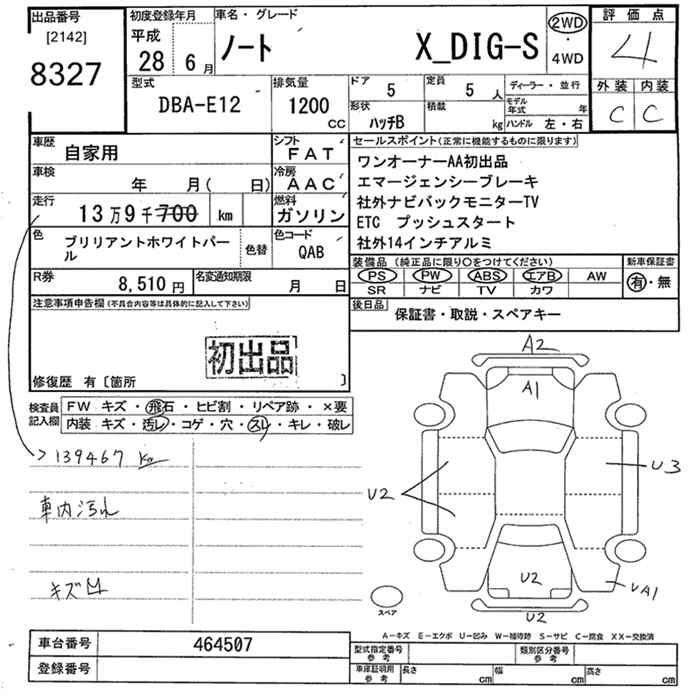 出品番号
[2142]
8327
初度登録年月
平成
28 6月
車名・グレード
ノート X_DIG-S
2WD
・
4WD
評価点
4
外装 内装
C C
型式
DBA-E12
排気量
1200
CC
ドア
5
定員
5人
形状
ハッチB
積載
kg
ディーラー・並行
モデル年式 年
ハンドル 左・右
車歴
自家用
シフト
FAT
車検
年 月( 日)
冷房
AAC
走行
13万9千700 km
燃料
ガソリン
色
ブリリアントホワイトパール
色替
色コード
QAB
R券
8,510円
名変通知期限
月 日
セールスポイント(正常に機能するものに限ります)
ワンオーナーAA初出品
エマージェンシーブレーキ
社外ナビバックモニターTV
ETC プッシュスタート
社外14インチアルミ
装備品(純正品に限り○をつけてください)
PS PW ABS エアB AW
SR ナビ TV カワ
新車保証書
有・無
後日品
保証書・取説・スペアキー
注意事項申告欄(不具合内容等は具体的に記入して下さい)
初出品
修復歴 有〔箇所 〕
検査員記入欄
FW キズ・飛石・ヒビ割・リペア跡・×要
内装 キズ・汚レ・コゲ・穴・スレ・キレ・破レ
>139467 km
車内汚れ
キズ凹
A2
A1
U2
U3
U2
UA1
U2
スペア
A-キズ E-エクボ U-凹み W-補修跡 S-サビ C-腐食 XX-交換済
車台番号 464507
登録番号
型式指定番号
参考
類別区分番号
参考
車庫証明用
参考
長さ cm
幅 cm
高さ cm